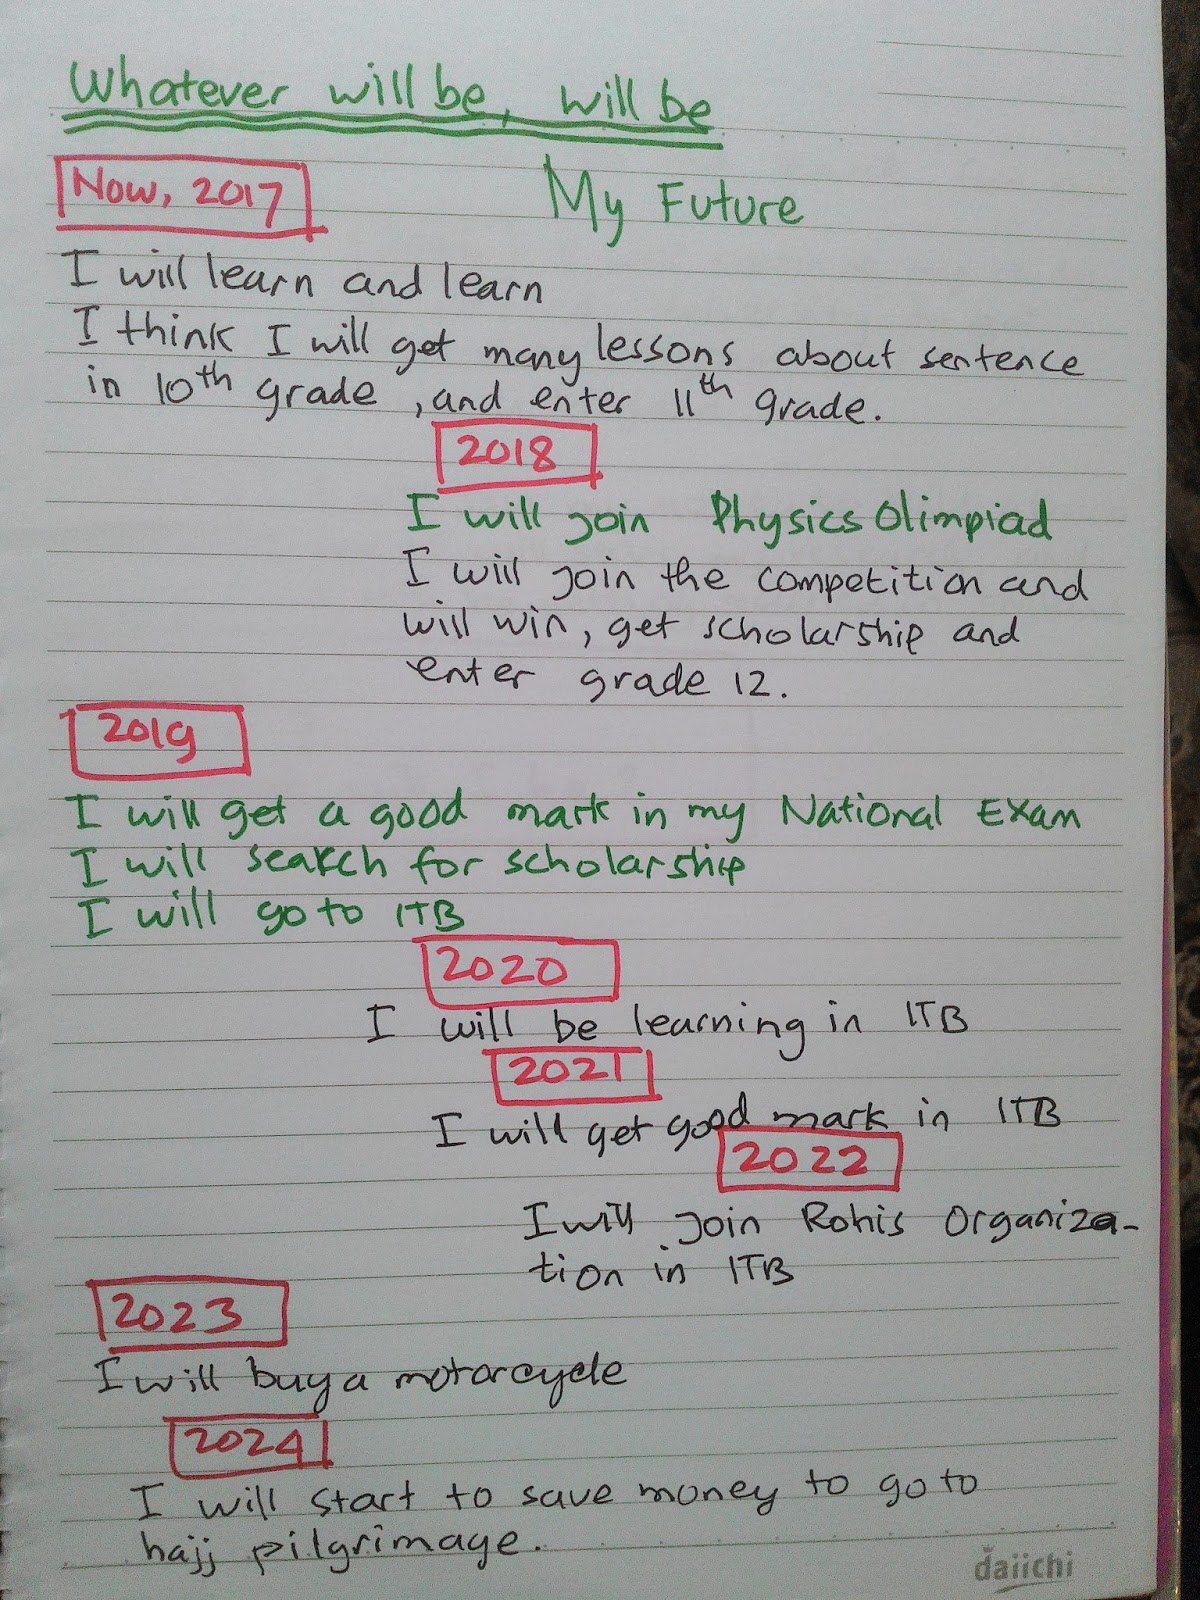 Whatever will be, will be
Now, 2017
My Future
I will learn and learn
I think I will get many lessons about sentence
in 10th grade, and enter 11th grade.
2018
I will join Physics Olimpiad
I will join the competition and
will win, get scholarship and
enter grade 12.
2019
I will get a good mark in my National Exam
I will search for scholarship
I will go to ITB
2020
I will be learning in ITB
2021
I will get good mark in ITB
2022
I will join Rohis Organiza-
tion in ITB
2023
I will buy a motorcycle
2024
I will start to save money to go to
hajj pilgrimage.
daiichi